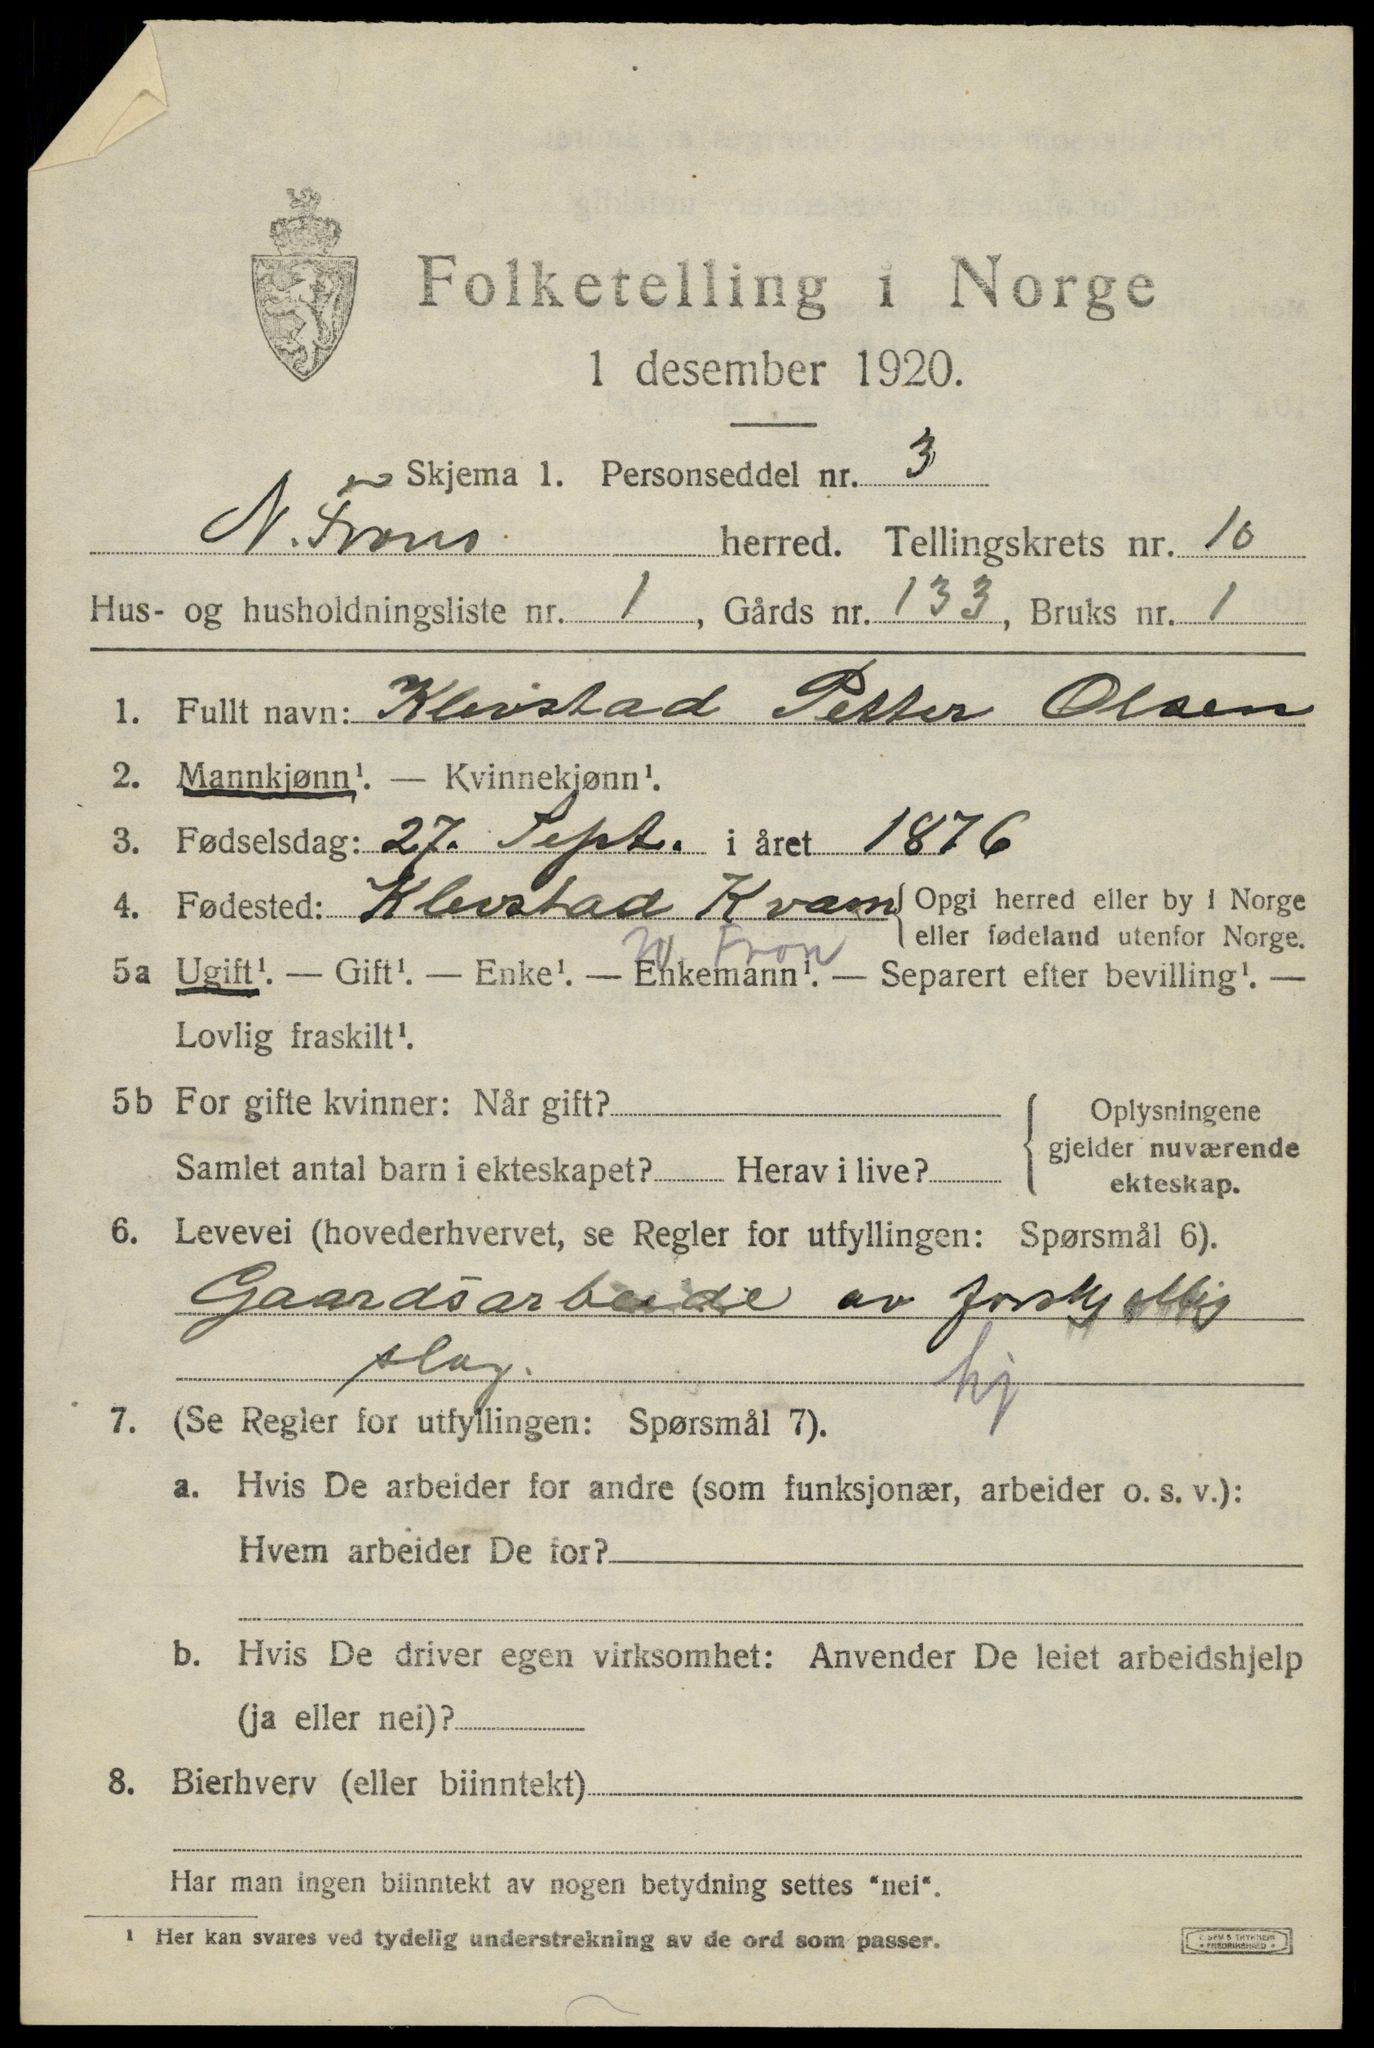 Folketelling i Norge
1 desember 1920.
Skjema 1. Personseddel nr. 3
N. Frons herred. Tellingskrets nr. 10
Hus- og husholdningsliste nr. 1, Gårds nr. 133, Bruks nr. 1
1. Fullt navn: Klevstad Petter Olsen
2. Mannkjønn¹. — Kvinnekjønn¹.
3. Fødselsdag: 27. Sept. i året 1876
4. Fødested: Klevstad Kvam { Opgi herred eller by i Norge
eller fødeland utenfor Norge.
N. Fron
5a Ugift¹. — Gift¹. — Enke¹. — Enkemann¹. — Separert efter bevilling¹. —
Lovlig fraskilt¹.
5b For gifte kvinner: Når gift?
Samlet antal barn i ekteskapet? Herav i live?
Oplysningene
gjelder nuværende
ekteskap.
6. Levevei (hovederhvervet, se Regler for utfyllingen: Spørsmål 6).
Gaardsarbeide av forskjellig
slag. hj
7. (Se Regler for utfyllingen: Spørsmål 7).
a. Hvis De arbeider for andre (som funksjonær, arbeider o. s. v.):
Hvem arbeider De for?
b. Hvis De driver egen virksomhet: Anvender De leiet arbeidshjelp
(ja eller nei)?
8. Bierhverv (eller biinntekt)
Har man ingen biinntekt av nogen betydning settes "nei".
¹ Her kan svares ved tydelig understrekning av de ord som passer.